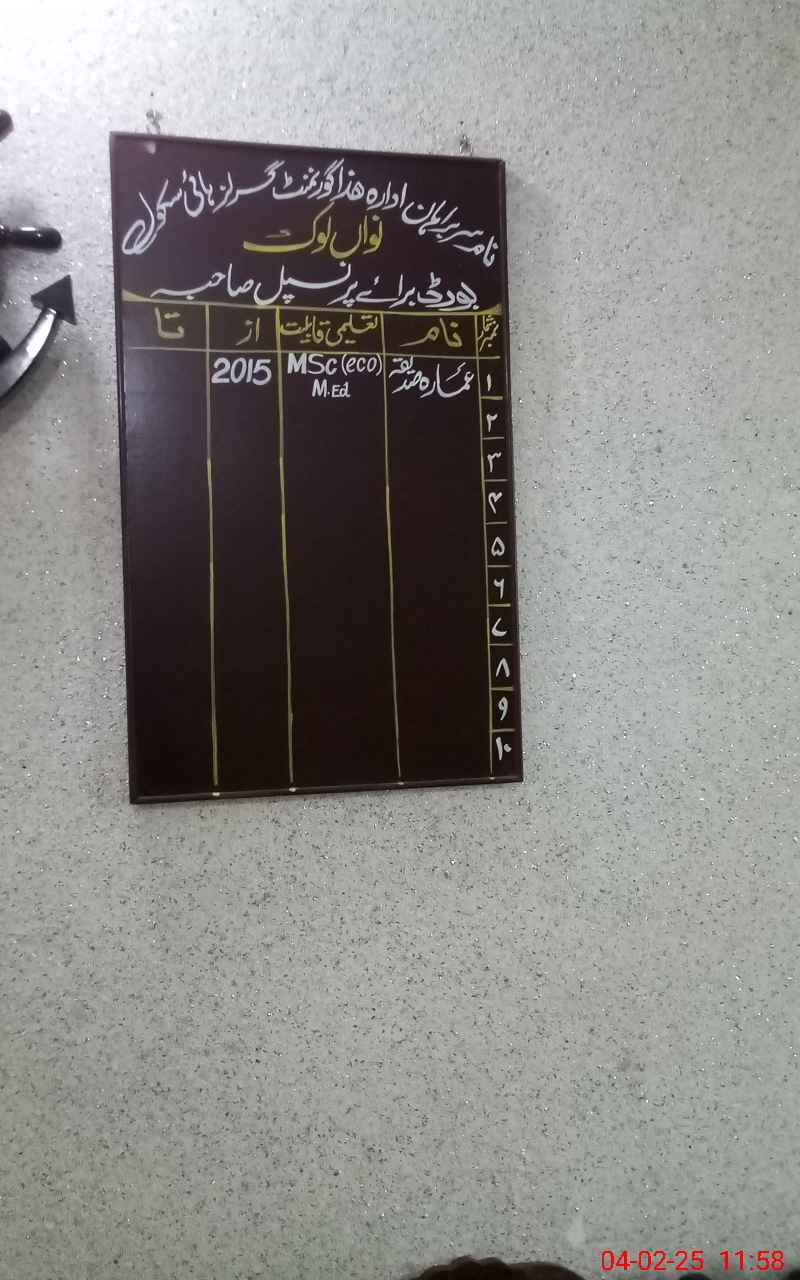 نام سربراہان ادارہ ھذا گورنمنٹ گرلز ہائی سکول
نواں لوک
بورڈ برائے پرنسپل صاحبہ
نمبر شمار نام تعلیمی قابلیت از تا
۱ عمارہ صدیقہ MSc (eco) 2015
M.Ed
۲
۳
۴
۵
۶
۷
۸
۹
۱۰
04-02-25 11:58